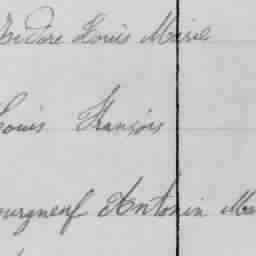 Isidore Louis Marie
Louis François
ourgneuf Antonin Ma